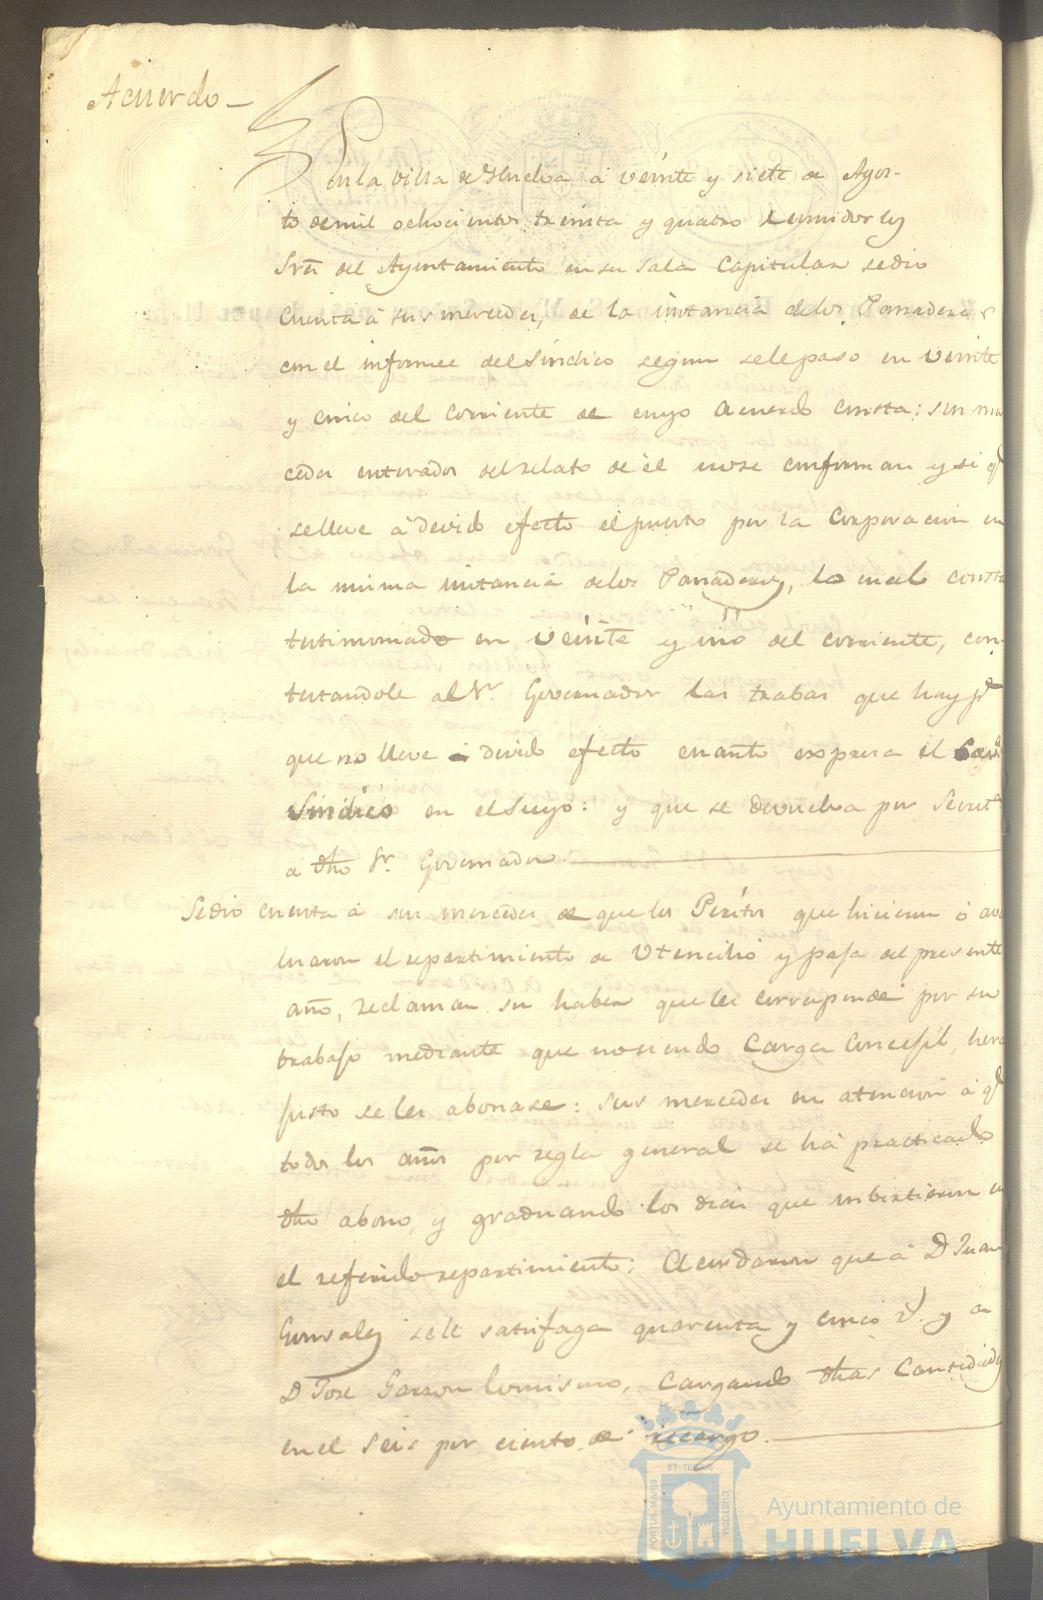 Acuerdo
En la villa de Huelva á veinte y siete de Agos-
to de mil ochocientos treinta y quatro reunidos los
Sres del Ayuntamiento en su Sala Capitular se dio
cuenta á sus mercedes, de la instancia de los Panaderos
con el informe del Sindico segun se le paso en veinte
y cinco del corriente de cuyo acuerdo consta: sus mer
cedes enterados del relato de él no se conforman y si q.e
se lleve á devido efecto el puesto por la Corporacion en
la misma instancia de los Panaderos, lo cual consta
testimoniado en veinte y del corriente, con-
testandole al Sr Governador las trabas que hay p.a
que no lleve á devido efecto cuanto expresa el
Sindico en el suyo: y que se devuelva por Secreta
a dho Sr. Governador.
Se dio cuenta á sus mercedes de que los Peritos que hicieron ó ava
luaron el repartimiento de Utencilio y paja del presente
año, reclaman su haber que les corresponde por su
trabajo mediante que no siendo Carga Concejil, hera
justo se les abonase: sus mercedes en atencion á q.e
todos los años por regla general se há practicado
dho abono, y graduando los dias que imbirtieron en
el referido repartimiento; Acordaron que á D Juan
Gonsalez se le satisfaga quarenta y cinco r.s y a
D Jose Garzon lo mismo, cargando dhas Cantidades
en el Seis por ciento de recargo.
PORTUS MARIS
ET TERRAE
CUSTODIA
Ayuntamiento de
HUELVA